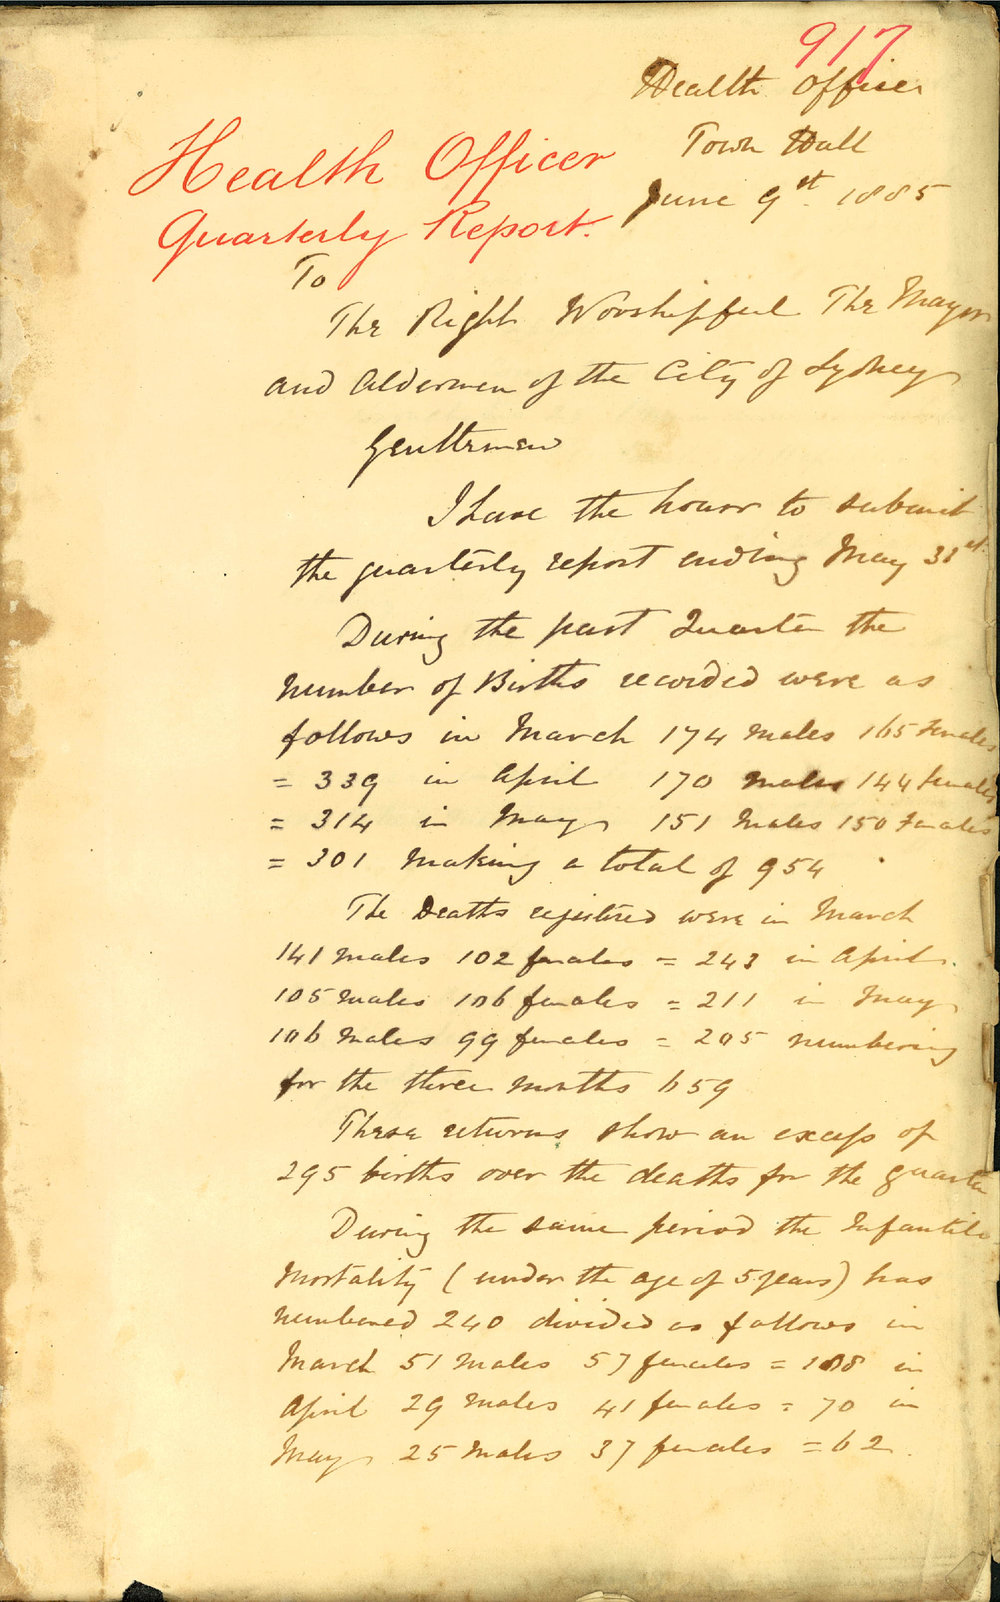 917
Health Officer
Town Hall
June 9st. 1885
Health Officer
Quarterly Report.
To
The Right Worshipful The Mayor
and Aldermen of the City of Sydney
Gentlemen
I have the honor to submit
the quarterly report ending May 31st.
During the past Quarter the
number of Births recorded were as
follows in March 174 males 165 females
= 339 in April 170 males 144 females
= 314 in May 151 males 150 Females
= 301 making a total of 954
The Deaths registered were in March
141 males 102 females = 243 in April
105 males 106 females = 211 in May
106 males 99 females = 205 numbering
for the three months 659
These returns show an excess of
295 births over the deaths for the quarter
During the same period the Infantile
Mortality (under the age of 5 years) has
numbered 240 divided as follows in
March 51 males 57 females = 108 in
April 29 males 41 females = 70 in
May 25 males 37 females = 62